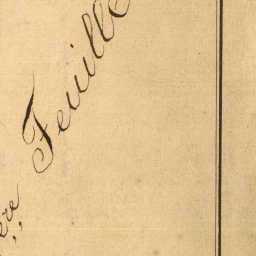 ère Feuille